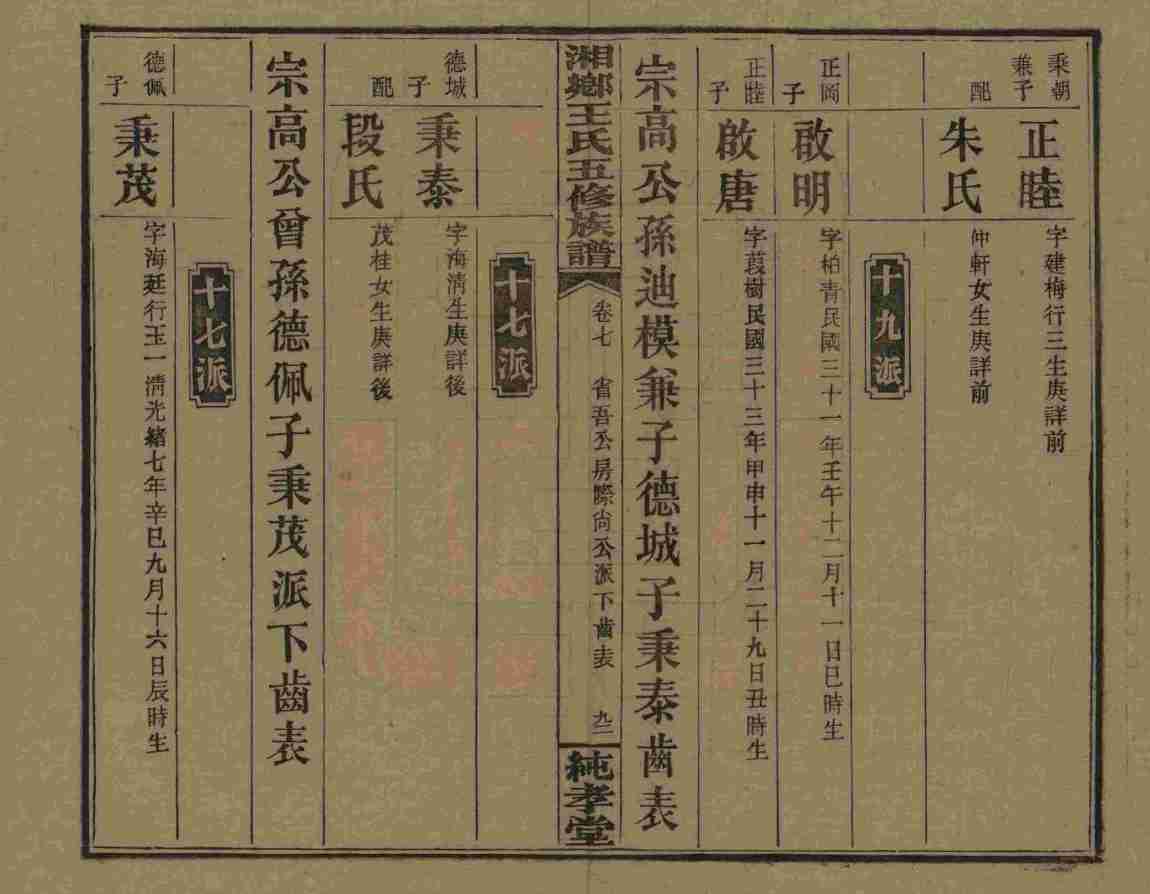 秉朝兼子
正睦
字建梅行三生庚詳前
配
朱氏
仲軒女生庚詳前
十九派
正岡子
啟明
字柏青民國三十一年壬午十二月十一日巳時生
正睦子
啟唐
字葭樹民國三十三年甲申十一月二十九日丑時生
宗高公孫迪模兼子德城子秉泰齒表
湘鄉王氏五修族譜
卷七
省吾公房際尙公派下齒表
九二
純孝堂
十七派
德城子
秉泰
字海淸生庚詳後
配
段氏
茂桂女生庚詳後
宗高公曾孫德佩子秉茂派下齒表
十七派
德佩子
秉茂
字海廷行玉一淸光緒七年辛巳九月十六日辰時生